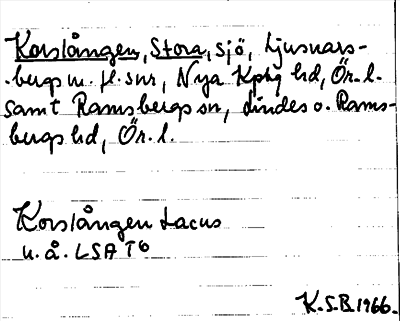 Korslången, Stora, sjö, Ljusnars-
bergs m. fl. snr, Nya Kpbg hd, Ör. l.
samt Ramsbergs sn, Lindes o. Rams-
bergs hd, Ör. l.
Korslången Lacus
u. å. LSA T6
K.S.B. 1966.